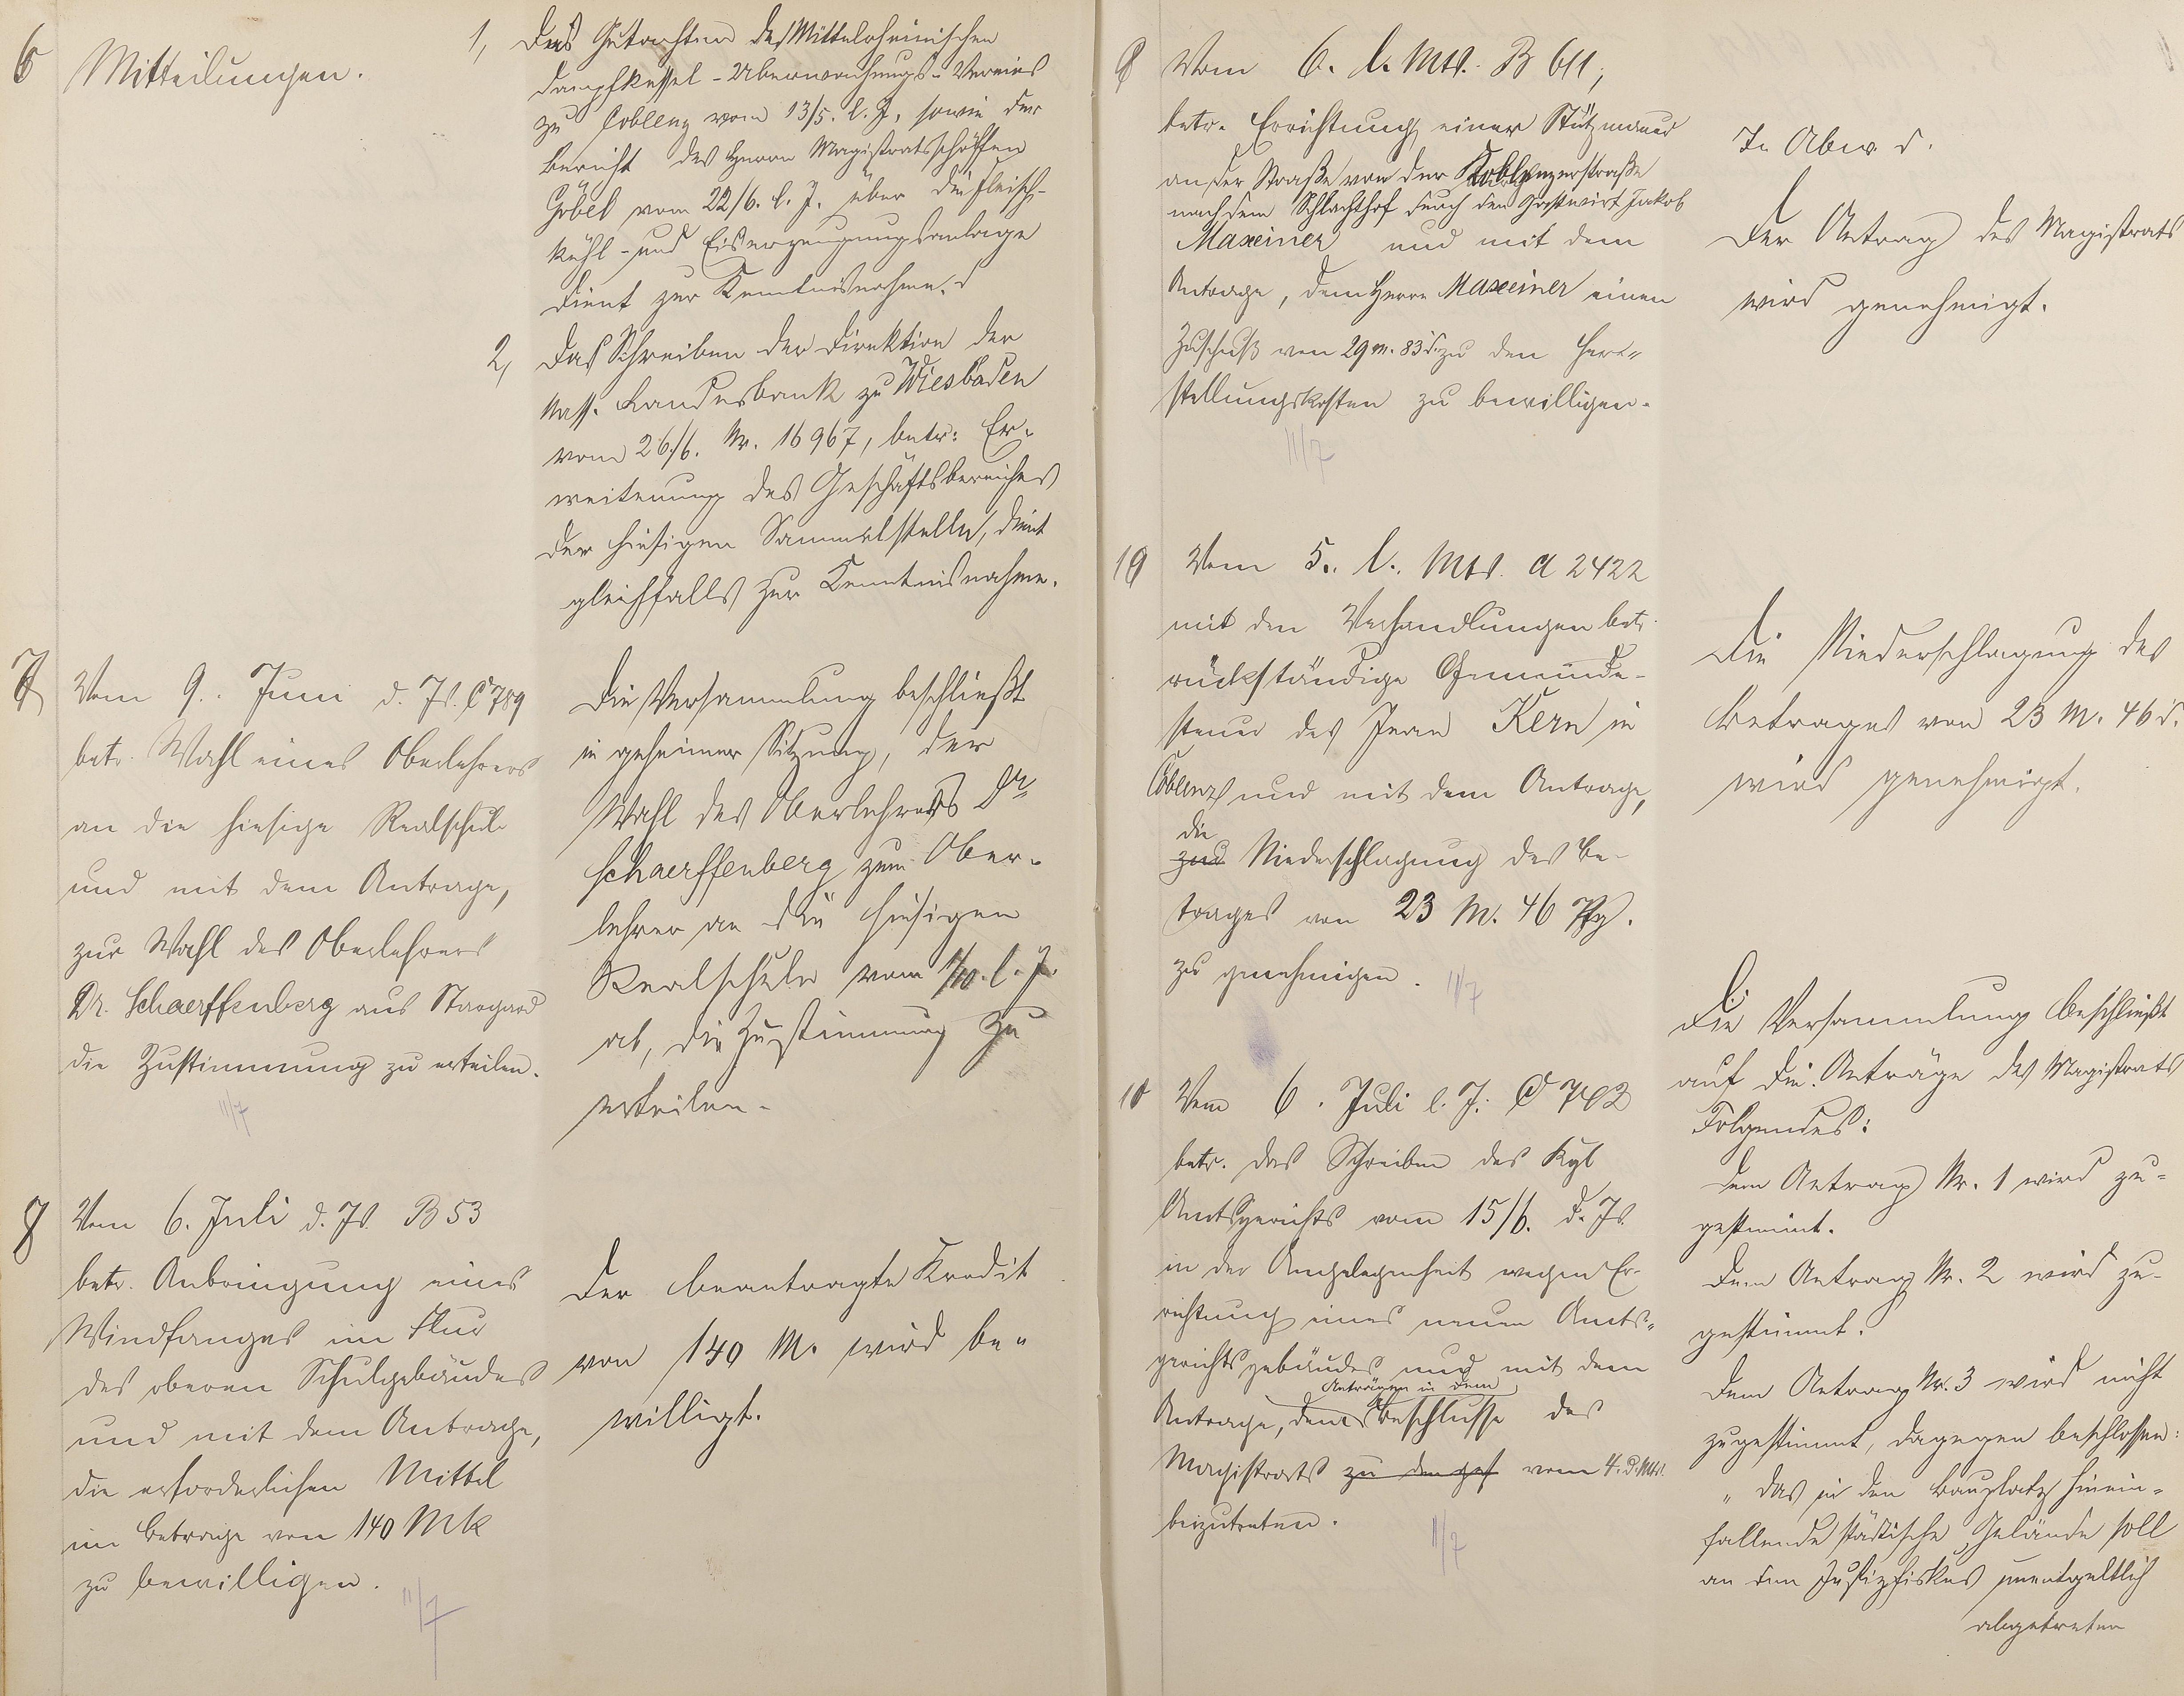 6 Mitteilungen.
1, Das Gutachten des Mittelrheinischen
Dampfkessel-Überwachungs-Vereins
zu Coblenz vom 13/5. l. J., sowie der
Bericht des Herrn Magistratsschöffen
Göbel vom 22/6. l. J. über die Fleisch-
kühl- und Eiserzeugungsanlage
dient zur Kenntnisnahme.
2, Das Schreiben der Direktion der
Nass. Landesbank zu Wiesbaden
vom 26/6. Nr. 16967, betr: Er-
weiterung des Geschäftsbereiches
der hiesigen Sammelstelle, dient
gleichfalls zur Kenntnisnahme.
7 Vom 9. Juni d. Js. C 789
betr. Wahl eines Oberlehrers
an die hiesige Realschule
und mit dem Antrage,
zur Wahl des Oberlehrers
Dr. Schaerffenberg aus Stargard
die Zustimmung zu erteilen.
11/7
Die Versammlung beschließt
in geheimer Sitzung, der
Wahl des Oberlehrers Dr
Schaerffenberg zum Ober-
lehrer an die hiesigen
Realschule vom 1/10. l. J.
ab, die Zustimmung zu
erteilen.
8 Vom 6. Juli d. Js. B 53
betr. Anbringung eines
Windfanges im Flur
des oberen Schulgebäudes
und mit dem Antrage,
die erforderlichen Mittel
im Betrage von 140 Mk
zu bewilligen.
11/7
Der beantragte Kredit
von 140 M. wird be-
willigt.
9 Vom 6. l. Mts. B 611,
betr. Errichtung einer Stützmauer
an der Straße von der Koblenzerstraße
nach dem Schlachthof durch den Gastwirt Jakob
Maxeiner und mit dem
Antrage, dem Herrn Maxeiner einen
Zuschuß von 29 M. 83 d. zu den Her-
stellungskosten zu bewilligen.
11/7
Der Antrag des Magistrats
wird genehmigt.
10 Vom 5. l. Mts. A 2422
mit den Verhandlungen betr.
rückständige Gemeinde-
steuer des Jean Kern in
Coblenz und mit dem Antrage,
die
zur Niederschlagung des Be-
trages von 23 M. 46 Pfg.
zu genehmigen.
11/7
Die Niederschlagung des
Betrages von 23 M. 46 d.
wird genehmigt.
10 Vom 6. Juli l. J. C 742
betr. das Schreiben des Kgl
Amtsgerichts vom 15/6. d. Js.
in der Angelegenheit wegen Er-
richtung eines neuen Amts-
gerichtsgebäudes und mit dem
Anträgen in dem
Antrage, dem Beschlusse des
Magistrats zu dem vom 4. d. Mts.
beizutreten.
11/7
Die Versammlung beschließt
auf die Anträge des Magistrats
Folgendes:
Dem Antrag Nr. 1 wird zu-
gestimmt.
Dem Antrag Nr. 2 wird zu-
gestimmt.
Dem Antrag Nr. 3 wird nicht
zugestimmt, dagegen beschlossen:
"das in den Bauplatz hinein-
fallende städtische Gelände soll
an den Justizfiskus unentgeltlich
abgetreten